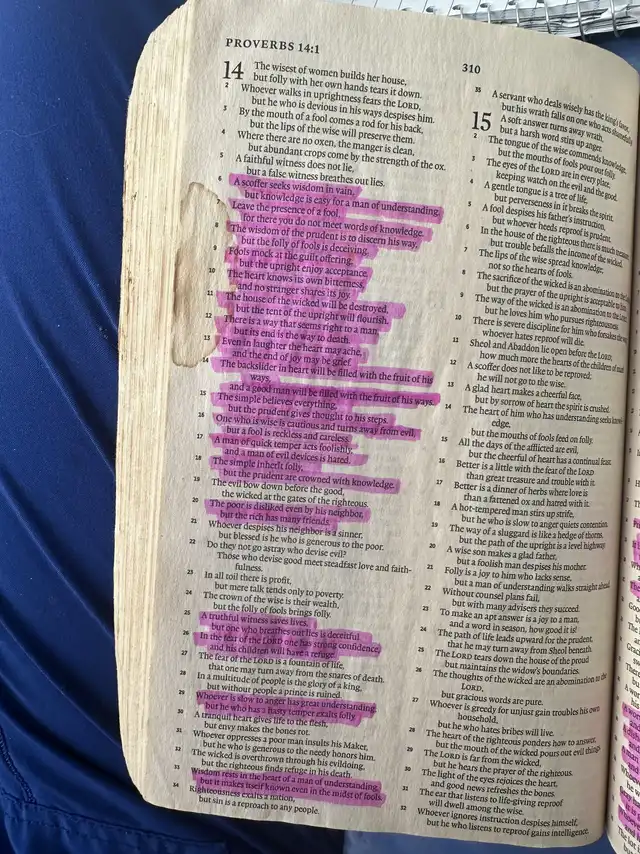 PROVERBS 14:1
310
14 The wisest of women builds her house,
but folly with her own hands tears it down.
2 Whoever walks in uprightness fears the LORD,
but he who is devious in his ways despises him.
3 By the mouth of a fool comes a rod for his back,
but the lips of the wise will preserve them.
4 Where there are no oxen, the manger is clean,
but abundant crops come by the strength of the ox.
5 A faithful witness does not lie,
but a false witness breathes out lies.
6 A scoffer seeks wisdom in vain,
but knowledge is easy for a man of understanding.
Leave the presence of a fool,
for there you do not meet words of knowledge.
8 The wisdom of the prudent is to discern his way,
but the folly of fools is deceiving.
9 Fools mock at the guilt offering,
but the upright enjoy acceptance.
10 The heart knows its own bitterness,
and no stranger shares its joy.
11 The house of the wicked will be destroyed,
but the tent of the upright will flourish.
12 There is a way that seems right to a man,
but its end is the way to death.
13 Even in laughter the heart may ache,
and the end of joy may be grief.
14 The backslider in heart will be filled with the fruit of his
ways,
and a good man will be filled with the fruit of his ways.
15 The simple believes everything,
but the prudent gives thought to his steps.
16 One who is wise is cautious and turns away from evil,
but a fool is reckless and careless.
17 A man of quick temper acts foolishly,
and a man of evil devices is hated.
18 The simple inherit folly,
but the prudent are crowned with knowledge.
19 The evil bow down before the good,
the wicked at the gates of the righteous.
20 The poor is disliked even by his neighbor,
but the rich has many friends.
21 Whoever despises his neighbor is a sinner,
but blessed is he who is generous to the poor.
22 Do they not go astray who devise evil?
Those who devise good meet steadfast love and faith-
fulness.
23 In all toil there is profit,
but mere talk tends only to poverty.
24 The crown of the wise is their wealth,
but the folly of fools brings folly.
25 A truthful witness saves lives,
but one who breathes out lies is deceitful.
26 In the fear of the LORD one has strong confidence,
and his children will have a refuge.
27 The fear of the LORD is a fountain of life,
that one may turn away from the snares of death.
28 In a multitude of people is the glory of a king,
but without people a prince is ruined.
29 Whoever is slow to anger has great understanding,
but he who has a hasty temper exalts folly.
30 A tranquil heart gives life to the flesh,
but envy makes the bones rot.
31 Whoever oppresses a poor man insults his Maker,
but he who is generous to the needy honors him.
32 The wicked is overthrown through his evildoing,
but the righteous finds refuge in his death.
33 Wisdom rests in the heart of a man of understanding,
but it makes itself known even in the midst of fools.
34 Righteousness exalts a nation,
but sin is a reproach to any people.
35 A servant who deals wisely has the king's favor,
but his wrath falls on one who acts shamefully.
15 A soft answer turns away wrath,
but a harsh word stirs up anger.
2 The tongue of the wise commends knowledge,
but the mouths of fools pour out folly.
3 The eyes of the LORD are in every place,
keeping watch on the evil and the good.
4 A gentle tongue is a tree of life,
but perverseness in it breaks the spirit.
5 A fool despises his father's instruction,
but whoever heeds reproof is prudent.
6 In the house of the righteous there is much treasure,
but trouble befalls the income of the wicked.
7 The lips of the wise spread knowledge;
not so the hearts of fools.
8 The sacrifice of the wicked is an abomination to the
but the prayer of the upright is acceptable to
9 The way of the wicked is an abomination to the
but he loves him who pursues righteousness.
10 There is severe discipline for him who forsakes the way;
whoever hates reproof will die.
11 Sheol and Abaddon lie open before the LORD;
how much more the hearts of the children of man!
12 A scoffer does not like to be reproved;
he will not go to the wise.
13 A glad heart makes a cheerful face,
but by sorrow of heart the spirit is crushed.
14 The heart of him who has understanding seeks knowl-
edge,
but the mouths of fools feed on folly.
15 All the days of the afflicted are evil,
but the cheerful of heart has a continual feast.
16 Better is a little with the fear of the LORD
than great treasure and trouble with it.
17 Better is a dinner of herbs where love is
than a fattened ox and hatred with it.
18 A hot-tempered man stirs up strife,
but he who is slow to anger quiets contention.
19 The way of a sluggard is like a hedge of thorns,
but the path of the upright is a level highway.
20 A wise son makes a glad father,
but a foolish man despises his mother.
21 Folly is a joy to him who lacks sense,
but a man of understanding walks straight ahead.
22 Without counsel plans fail,
but with many advisers they succeed.
23 To make an apt answer is a joy to a man,
and a word in season, how good it is!
24 The path of life leads upward for the prudent,
that he may turn away from Sheol beneath.
25 The LORD tears down the house of the proud
but maintains the widow's boundaries.
26 The thoughts of the wicked are an abomination to the
LORD,
but gracious words are pure.
27 Whoever is greedy for unjust gain troubles his own
household,
but he who hates bribes will live.
28 The heart of the righteous ponders how to answer,
but the mouth of the wicked pours out evil things.
29 The LORD is far from the wicked,
but he hears the prayer of the righteous.
30 The light of the eyes rejoices the heart,
and good news refreshes the bones.
31 The ear that listens to life-giving reproof
will dwell among the wise.
32 Whoever ignores instruction despises himself,
but he who listens to reproof gains intelligence.